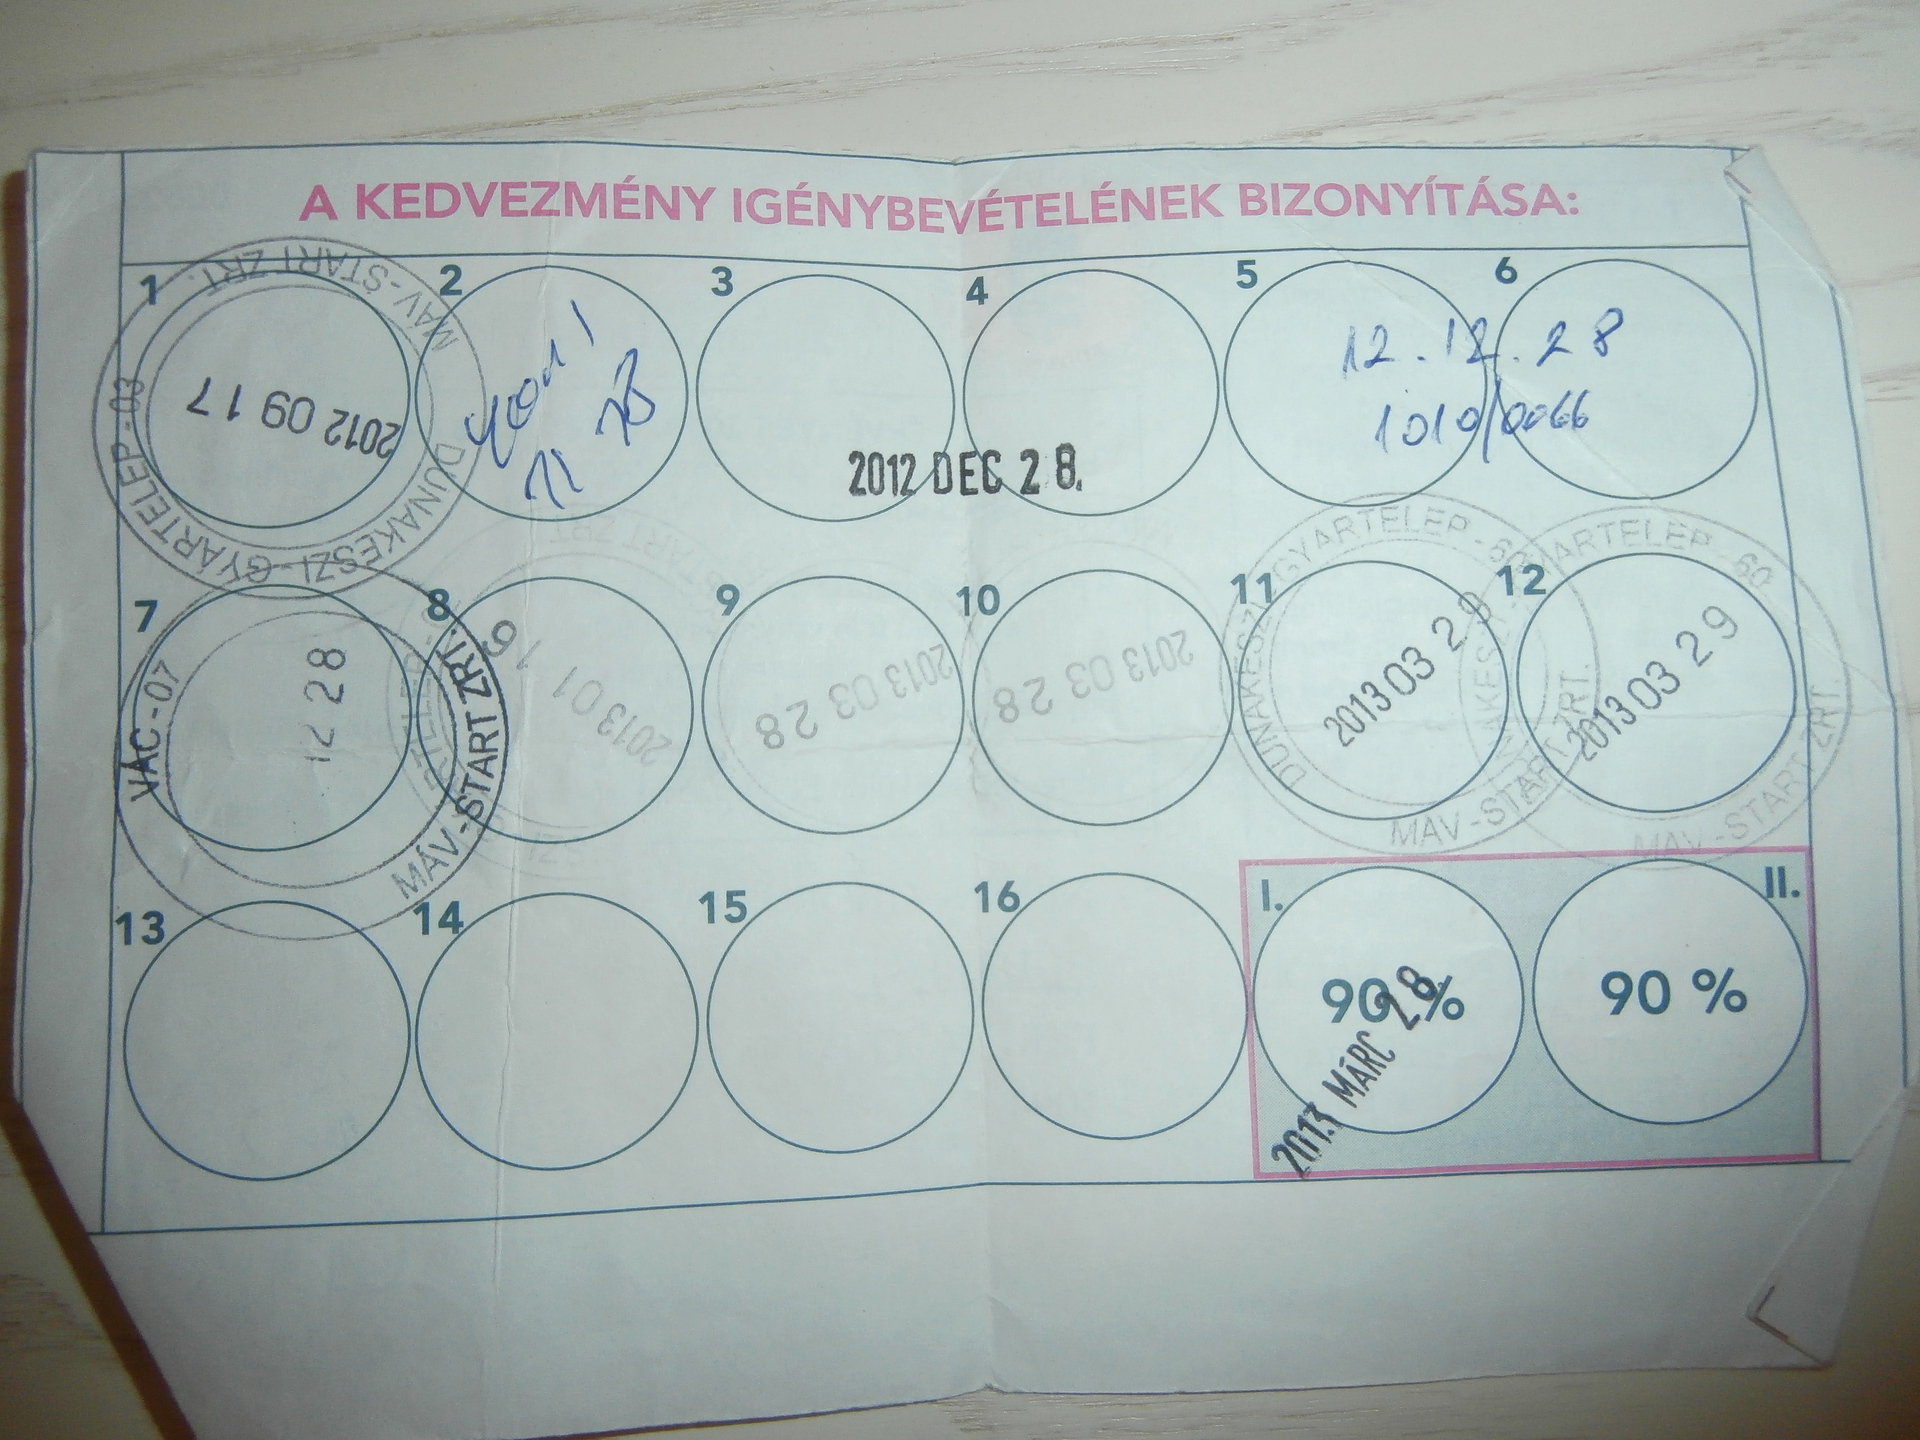 A KEDVEZMÉNY IGÉNYBEVÉTELÉNEK BIZONYÍTÁSA:
1
2
3
4
5
6
MÁV-START ZRT.
DUNAKESZI-GYÁRTELEP-03
2012 09 17
2012 DEC 28.
12.12.28
1010/0066
7
8
9
10
11
12
VÁC-07
MÁV-START ZRT.
12 28
2013 01 16
2013 03 28
2013 03 28
DUNAKESZI-GYÁRTELEP-
MÁV-START ZRT.
2013 03 29
MÁV-START ZRT.
2013 03 29
13
14
15
16
I.
II.
90 %
90 %
2013 MÁRC 28